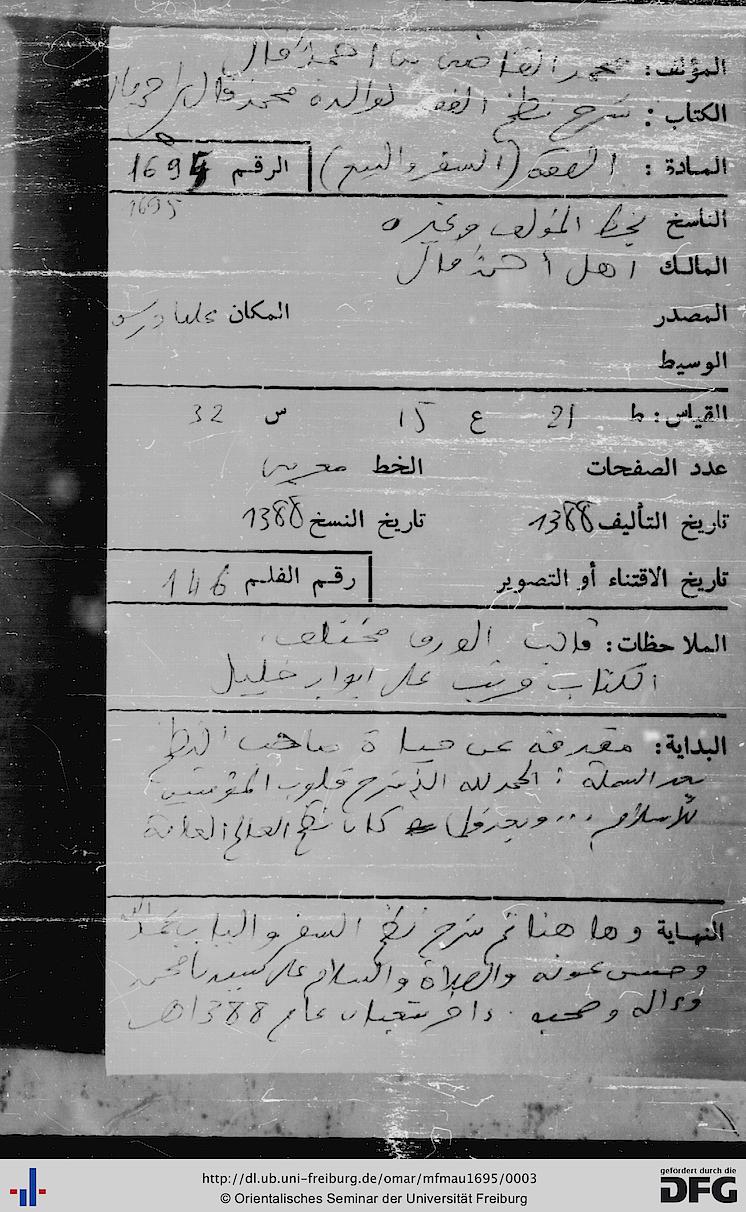 المؤلف: محمد القاضي بن احمد فال
الكتاب: شرح نظم الفقه لوالده محمد فال بن احمد فال
المادة: الفقه (السفر والبيع) الرقم 1695
1695
الناسخ بخط المؤلف وغيره
المالك اهل أحمد فال
المصدر المكان
الوسيط
القياس: ط 21 ع 15 س 32
عدد الصفحات الخط مغربي
تاريخ التأليف 1388 تاريخ النسخ 1388
تاريخ الاقتناء أو التصوير رقم الفلم 146
الملاحظات: قالب الورق مختلف،
الكتاب مرتب على ابواب خليل
البداية: مقدمة عن حياة صاحب النظم
بعد البسملة: الحمد لله الذي شرح قلوب المؤمنين
للأسلام ... وبعد فلما كان نظم العالم العلامة
النهاية وها هنا تم شرح نظم السفر والباب بحمد الله
وحسن عونه والصلاة والسلام على سيدنا محمد
وءاله وصحبه . ءاخر شعبان عام 1388هـ
http://dl.ub.uni-freiburg.de/omar/mfmau1695/0003
© Orientalisches Seminar der Universität Freiburg
gefördert durch die
DFG